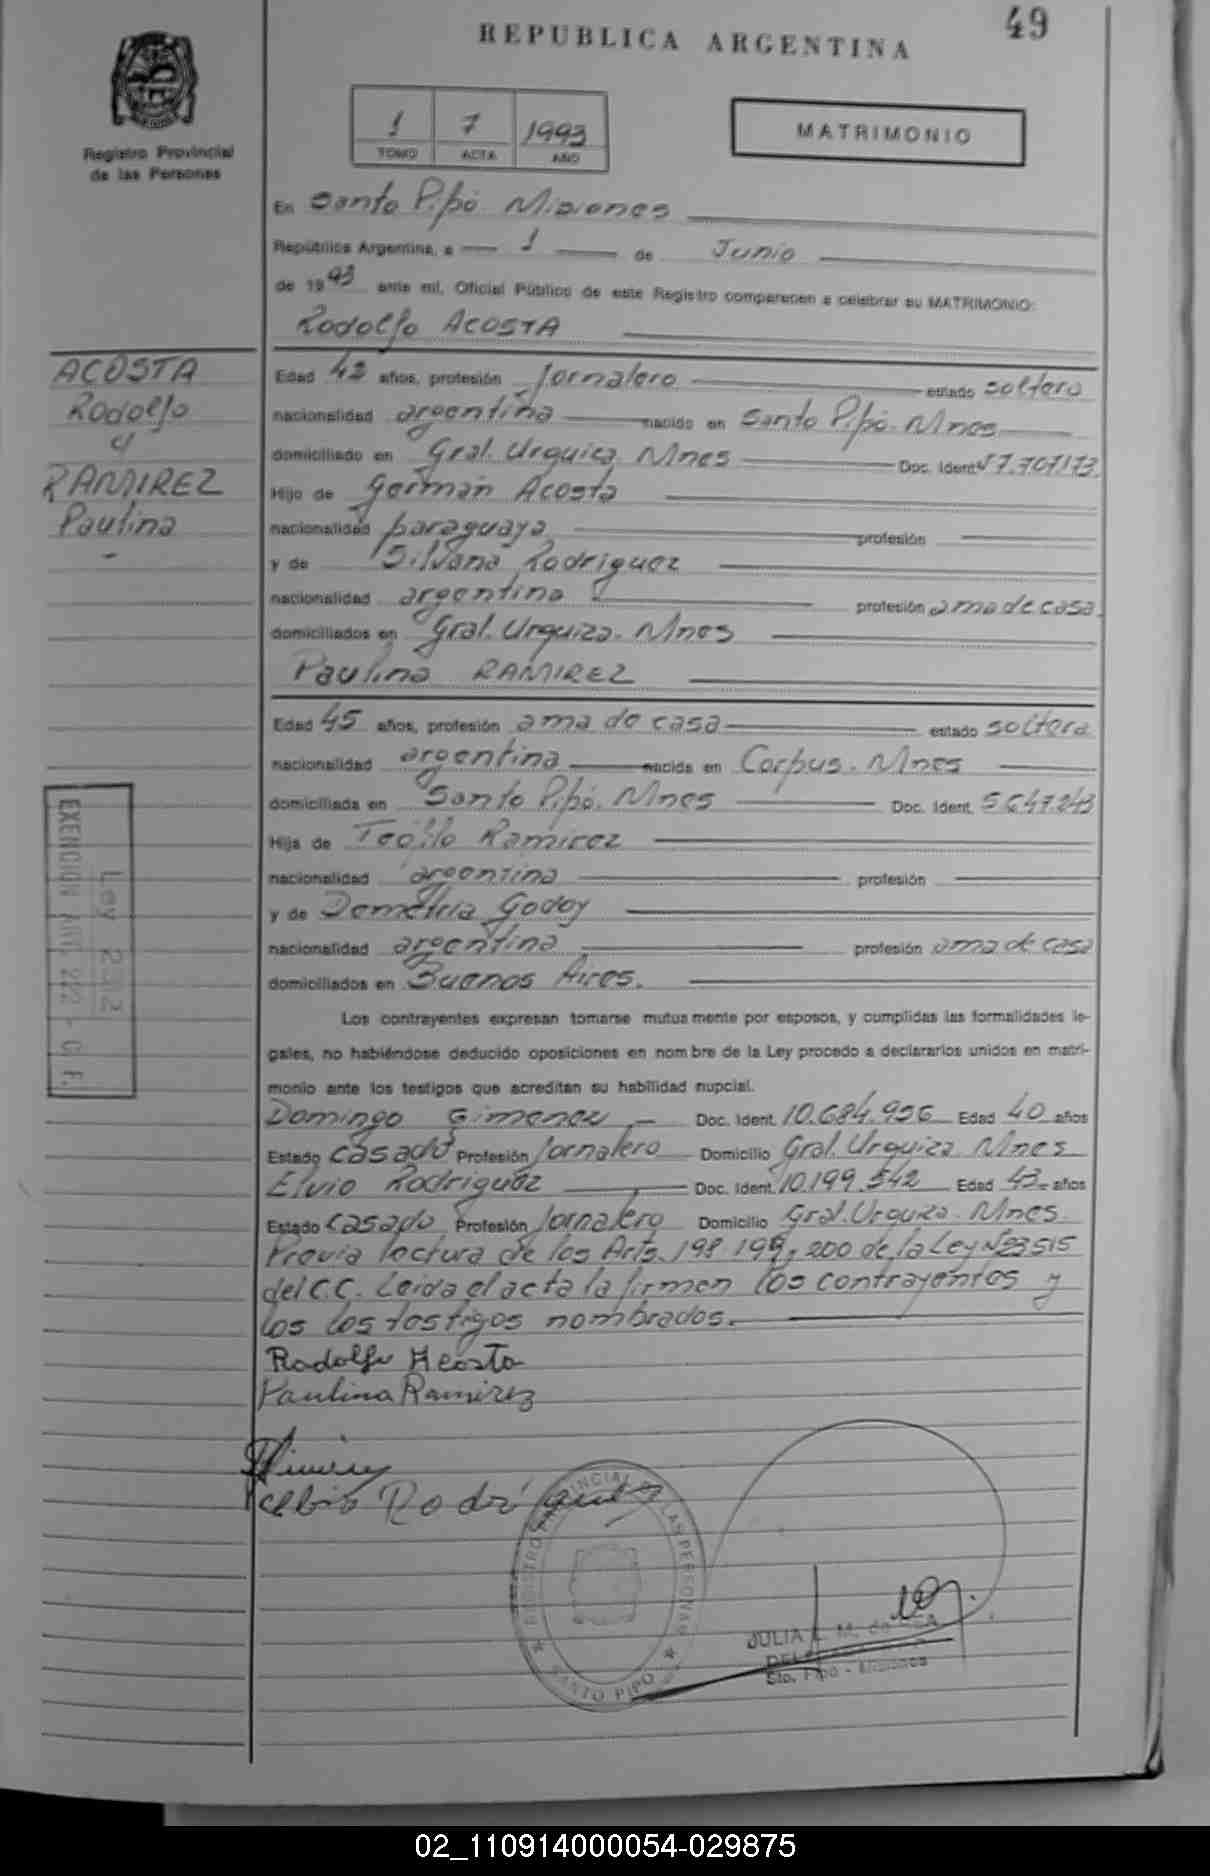 49
REPUBLICA ARGENTINA
Registro Provincial
de las Personas
1 7 1993
TOMO ACTA AÑO
MATRIMONIO
En Santo Pipó Misiones
República Argentina, a 1 de Junio
de 1993 ante mí, Oficial Público de este Registro comparecen a celebrar su MATRIMONIO:
Rodolfo ACOSTA
ACOSTA
Rodolfo
y
RAMIREZ
Paulina
Edad 42 años, profesión Jornalero estado soltero
nacionalidad argentina nacido en Santo Pipó. Mnes
domiciliado en Gral. Urquiza Mnes Doc. Ident. 7.707.173
Hijo de Germán Acosta
nacionalidad paraguaya profesión
y de Silvana Rodriguez
nacionalidad argentina profesión ama de casa.
domiciliados en Gral. Urquiza. Mnes
Paulina RAMIREZ
Edad 45 años, profesión ama de casa estado soltera
nacionalidad argentina nacida en Corpus. Mnes
domiciliada en Santo Pipó. Mnes Doc. Ident. 5.647.243
Hija de Teófilo Ramirez
nacionalidad argentina profesión
y de Demetria Godoy
nacionalidad argentina profesión ama de casa
domiciliados en Buenos Aires.
EXENCION ART. 222 - C. F.
Ley 2
Los contrayentes expresan tomarse mutuamente por esposos, y cumplidas las formalidades le-
gales, no habiéndose deducido oposiciones en nombre de la Ley procedo a declararlos unidos en matri-
monio ante los testigos que acreditan su habilidad nupcial.
Domingo Gimenez Doc. Ident. 10.684.956 Edad 40 años
Estado casado Profesión Jornalero Domicilio Gral. Urquiza. Mnes
Elvio Rodriguez Doc. Ident. 10.199.542 Edad 43 años
Estado casado Profesión Jornalero Domicilio Gral. Urquiza. Mnes.
Previa lectura de los Arts. 198. 199, 200 de la Ley Nº 23515
del C.C. Leida el acta la firman los contrayentes y
los los testigos nombrados.
Rodolfo Acosta
Paulina Ramirez
Rodríguez
REGISTRO PROVINCIAL DE LAS PERSONAS
SANTO PIPO
JULIA M. de
Sto. Pipó - Misiones
02_110914000054-029875